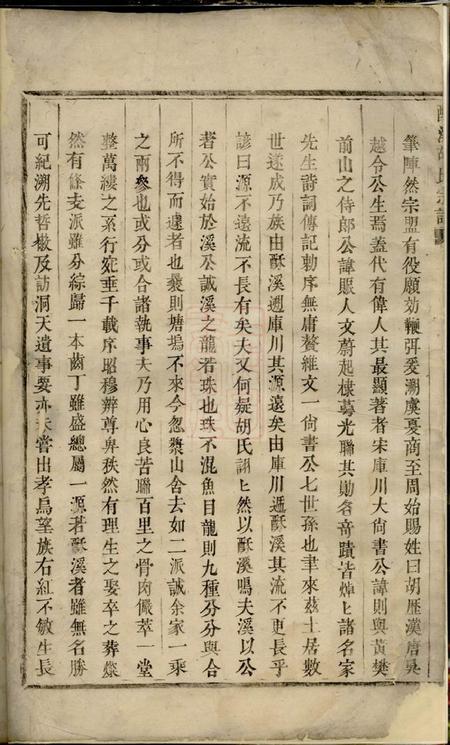 筆陣然宗盟有役願効鞭弭爰溯虞夏商至周始賜姓曰胡歷漢唐吳
越令公生焉蓋代有偉人其最顯著者宋庫川大尚書公諱則與黃樊
前山之侍郎公諱賑人文蔚起棣蕚光聯其勛名奇蹟皆焯匕諸名家
先生詩詞傳記勅序無庸贅維文一尚書公七世孫也聿來茲土居數
世遂成乃族由酥溪遡庫川其源遠矣由庫川遞酥溪其流不更長乎
諺曰源不遠流不長有矣夫又何疑胡氏詡匕然以酥溪鳴夫溪以公
著公實始於溪公誠溪之龍若珠也珠不混魚目龍則九種分分與合
所不得而遽者也曩則塘塢不來今忽漿山舍去如二派誠余家一乘
之兩參也或分或合諸執事夫乃用心良苦聯百里之骨肉儼萃一堂
整萬縷之系行宛垂千載序昭穆辨尊卑秩然有理生之娶卒之葬燦
然有條支派雖分綜歸一本齒丁雖盛總屬一源若酥溪者雖無名勝
可紀溯先哲檄及訪洞天遺事要亦未嘗出孝烏望族右紅不敏生長